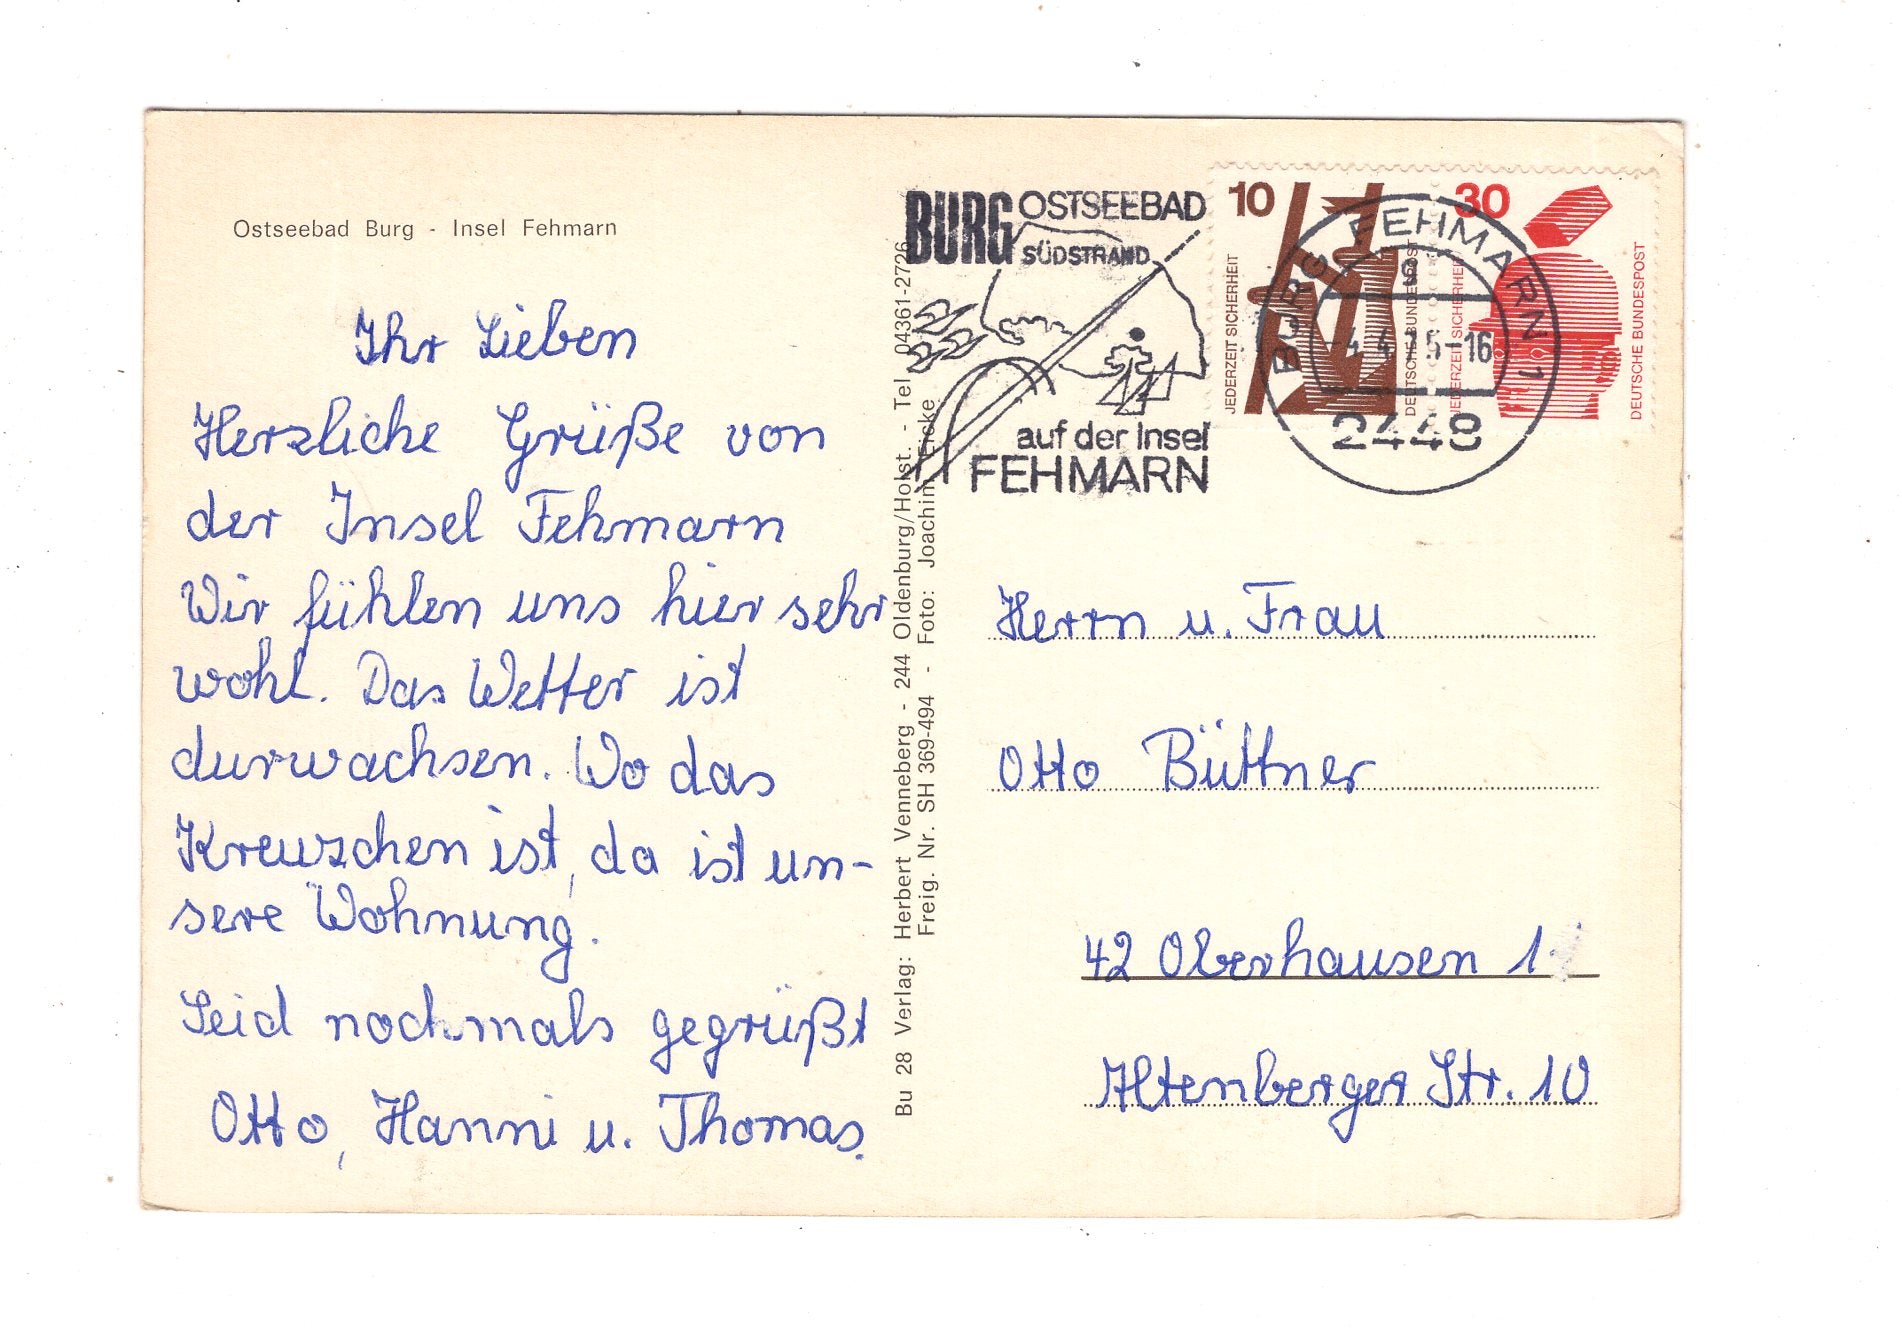 Ostseebad Burg - Insel Fehmarn
Ihr Lieben
Herzliche Grüße von
der Insel Fehmarn
Wir fühlen uns hier sehr
wohl. Das Wetter ist
durwachsen. Wo das
Kreuzchen ist, da ist un-
sere Wohnung.
Seid nochmals gegrüßt
Otto, Hanni u. Thomas.
Bu 28 Verlag: Herbert Venneberg - 244 Oldenburg/Holst. - Tel 04361-2726
Freig. Nr. SH 369-494 - Foto: Joachim Fricke
BURG OSTSEEBAD
SÜDSTRAND
auf der Insel
FEHMARN
10
JEDERZEIT SICHERHEIT
DEUTSCHE BUNDESPOST
30
JEDERZEIT SICHERHEIT
DEUTSCHE BUNDESPOST
BURG FEHMARN 1
g
-4.4.75-16
2448
Herrn u. Frau
Otto Büttner
42 Oberhausen 1
Altenberger Str. 10